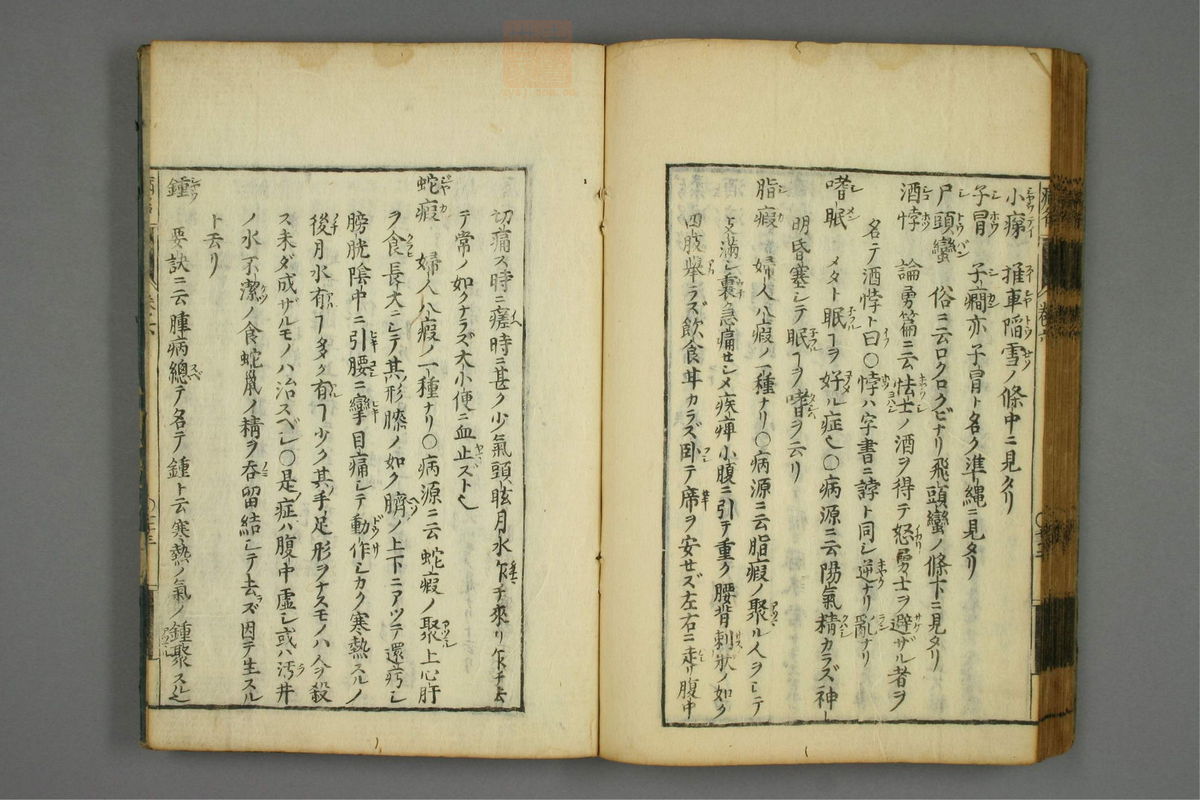 小瘳 推車陷雪ノ條中ニ見タリ
子冒 子癎亦子冒ト名ク準繩ニ見タリ
尸頭蠻 俗ニ云ロクロクビナリ飛頭蠻ノ條下ニ見タリ
酒悖 論勇篇ニ云怯士ノ酒ヲ得テ怒勇士ヲ避ザル者ヲ
名テ酒悖ト曰○悖ハ字書ニ誖ト同シ逆ナリ亂ナリ
嗜眠 メタト眠ヿヲ好ル症也○病源ニ云陽氣精カラズ神
明昏塞シテ眠ヿヲ嗜ヲ云リ
脂瘕 婦人八瘕ノ一種ナリ○病源ニ云脂瘕ノ聚ル人ヲシテ
滿シ裏急痛セシメ疾痺小腹ニ引テ重ク腰背刺狀ノ如ク
四肢舉ラズ飲食甘カラズ卧テ席ヲ安セズ左右ニ走リ腹中
切痛ス時ニ瘥時ニ甚ク少氣頭眩月水乍チ來リ乍チ去
テ常ノ如クナラズ大小便ニ血止ズト也
蛇瘕 婦人八瘕ノ一種ナリ○病源ニ云蛇瘕ノ聚上心肝
ヲ食長大ニシテ其形膝ノ如ク臍ノ上下ニアツテ還疞シ
膀胱陰中ニ引腰ニ攣目痛シテ動作シカタク寒熱スルノ
後月水有ヿ多ク有ヿ少ク其手足形ヲナスモノハ今殺
ス未ダ成ザルモノハ治スベシ○是症ハ腹中虛シ或ハ汚井
ノ水不潔ノ食蛇鼠ノ精ヲ呑留結シテ去ズ因テ生スル
ト云リ
鍾 要訣ニ云腫病總テ名テ鍾ト云寒熱ノ氣ノ鍾聚ス也